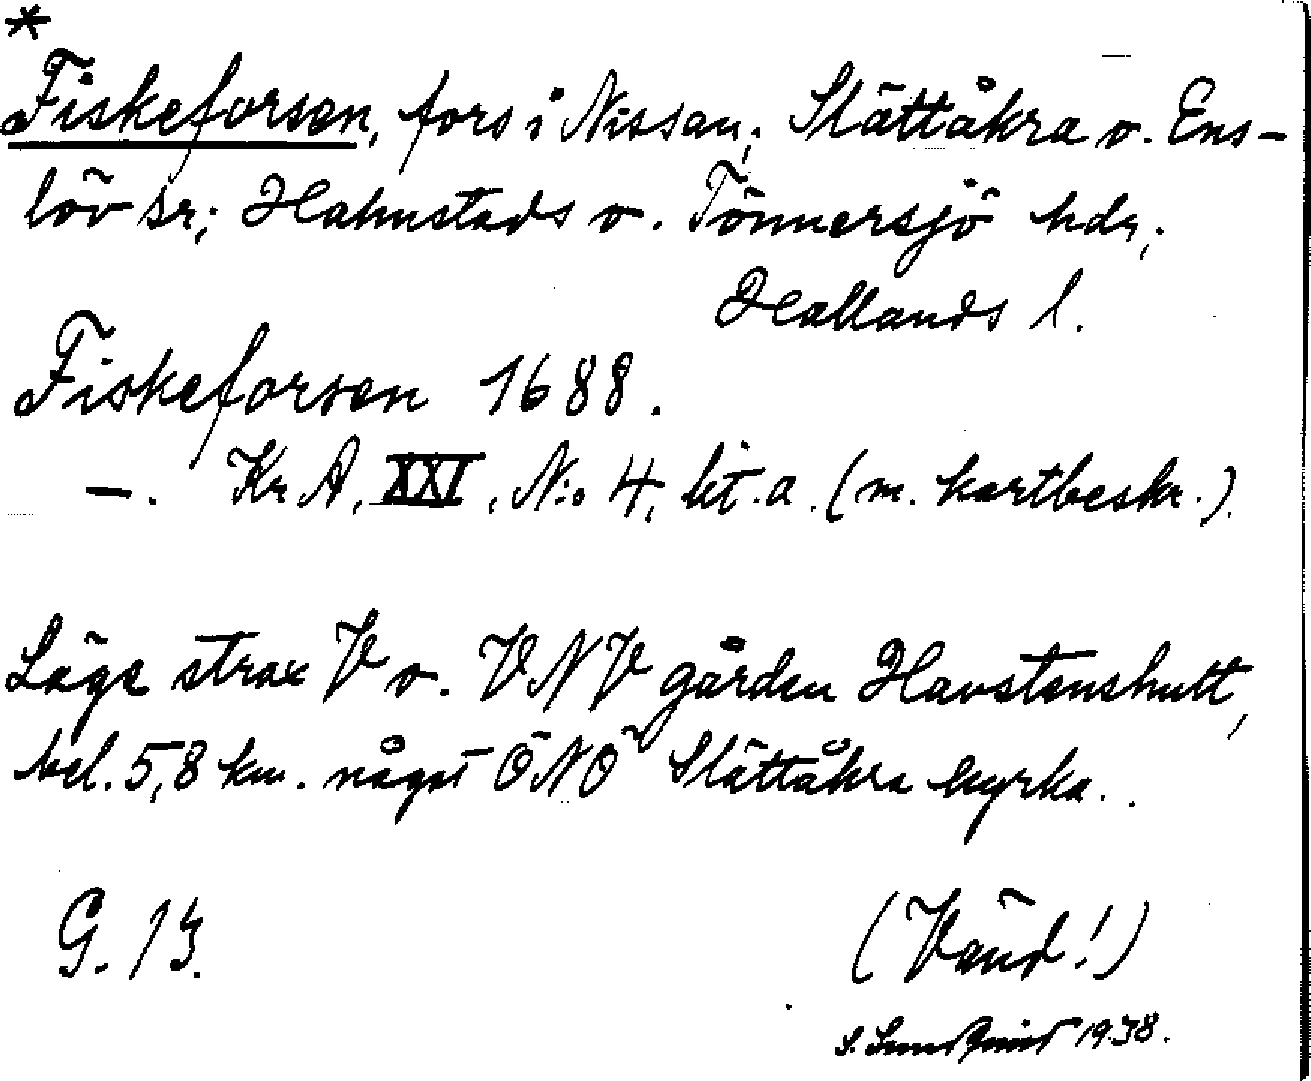 *
Fiskeforsen, fors i Nissan, Slättåkra o. Ens-
löv sr; Halmstads o. Tönnersjö hdr,
Hallands l.
Fiskeforsen 1688.
—. Kr A, XXI, N:o 4, lit. a. (m. kartbeskr.).
Läge strax V o. VNV gården Havstenshult,
bel. 5,8 km. något ÖNÖ Slättåkra kyrka..
G. 13.
(Vänd!)
S. Sundqvist 1938.